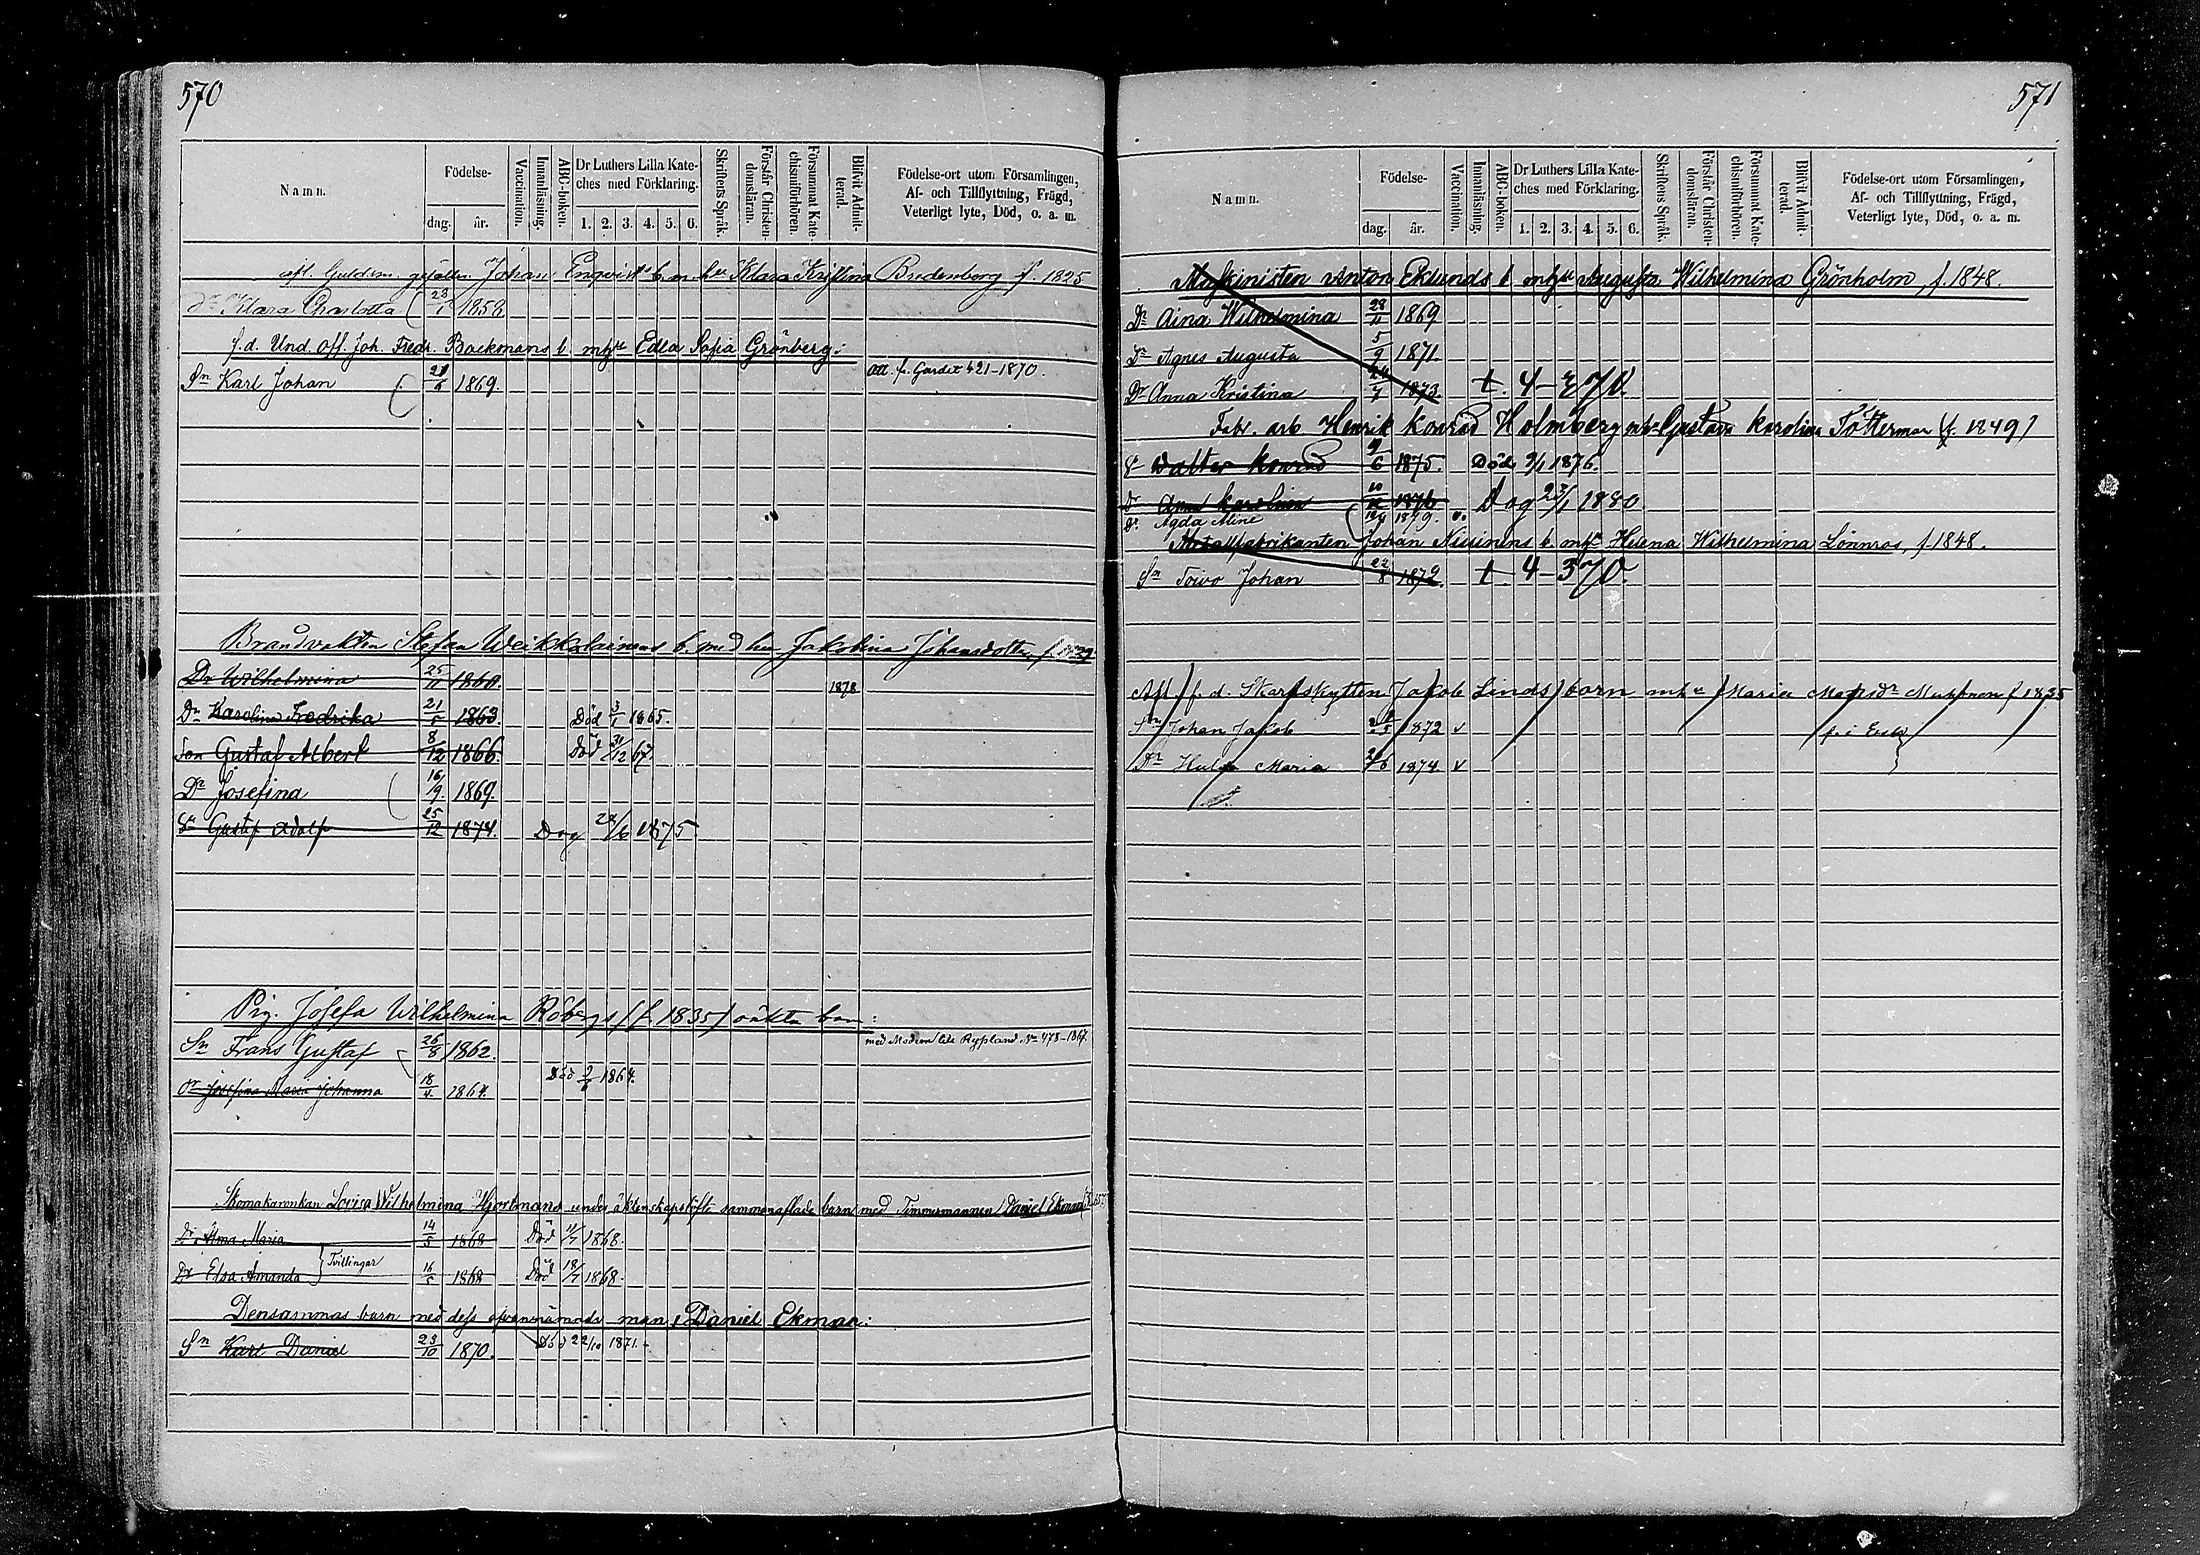 570
Namn.
Födelse-
dag.
år.
Vaccination.
Innanläsning.
ABC-boken.
Dr Luthers Lilla Kate-
ches med Förklaring.
1. 2. 3. 4. 5. 6.
Skriftens Språk.
Förstår Christen-
domsläran.
Försummat Kate-
chismiförhören.
Blifvit Admit-
terad.
Födelse-ort utom Församlingen,
Af- och Tillflyttning, Frägd,
Veterligt lyte, Död, o. a. m.
afl. Guldsm. gesällen Johan Enqvists b. m. hu Klara Kristina Bredenborg f. 1825
Dr Klara Charlotta 23/1 1858
f.d. Und. off. Joh. Fredr. Backmans b. m hu Edla Sofia Grönberg:
Sn Karl Johan 21/6 1869. att. f. Gardet 421-1870.
Brandvakten Stefan Weikkolainens b. med hu Jakobina Johansdotter, f. 1839
Dr Wilhelmina 25/11 1860. 1878
Dr Karolina Fredrika 21/5 1863 Död 3/1 1865.
Son Gustaf Albert 8/12 1866. Död 31/12 67.
Dr Josefina 16/9. 1869.
Sn Gustaf Adolf 25/12 1874. Dog 28/6 1875
Pig. Josefa Wilhelmina Röbergs (f. 1835) oäkta barn:
Sn Frans Gustaf 26/8 1862. med Modren Rypland. No 478-1867.
Dr Josefina Maria Johanna 18/4 1864. Död 1864.
Skomakarenkan Lovisa Wilhelmina Hjortmans under äktenskapslöfte sammanaflade barn med Timmermannen Daniel Ekman
Dr Alma Maria 14/5 1868 Död 11/7 1868.
Tvillingar
Dr Elsa Amanda 16/5 1868 Död 18/7 1868.
Densammas barn med dess ofvannämnde man, Daniel Ekman:
Sn Karl Daniel 23/10 1870. Död 22/10 1871.
571
Namn.
Födelse-
dag.
år.
Vaccination.
Innanläsning.
ABC-boken.
Dr Luthers Lilla Kate-
ches med Förklaring.
1. 2. 3. 4. 5. 6.
Skriftens Språk.
Förstår Christen-
domsläran.
Försummat Kate-
chismiförhören.
Blifvit Admit-
terad.
Födelse-ort utom Församlingen,
Af- och Tillflyttning, Frägd,
Veterligt lyte, Död, o. a. m.
Maskinisten Anton Eklunds b. m hu Augusta Wilhelmina Grönholm, f. 1848.
Dr Aina Wilhelmina 28/11 1869
Dr Agnes Augusta 5/9 1871.
Dr Anna Kristina 24/7 1873. t. 4-370.
Fabr. arb Henrik Konrad Holmberg m h Gustava Karolina Tötterman (f. 1849)
Sn Walter Konrad 9/6 1875. Död 3/1 1876.
Dr Karolina 1876 Dog 1880
Dr Agda Aline 1879. v.
Metallfabrikanten Johan Nissinens b. m hu Helena Wilhelmina Lönnros, f. 1848.
Sn Toivo Johan 22/8 1872. t 4-370.
Afl. f. d. Skarpskytten Jakob Linds barn m hu Maria f 1835
Sn Johan Jakob 1872 v
Dr Hulda Maria 1874. v